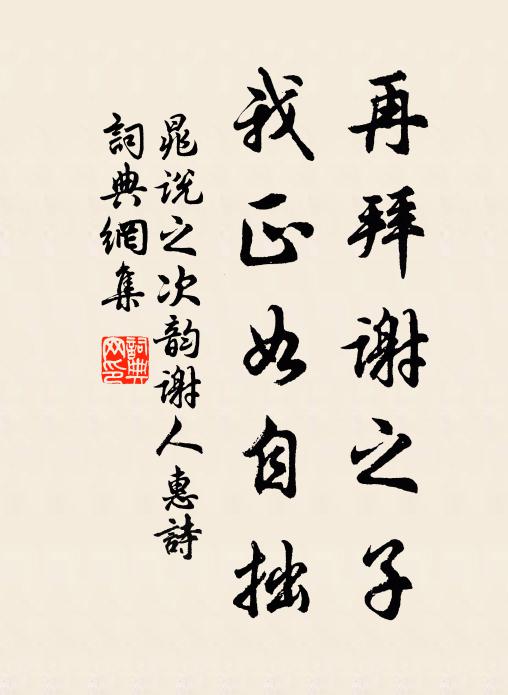 再拜谢之子
我正如自拙
晁说之次韵谢人惠詩
詞典網集
詞典网印